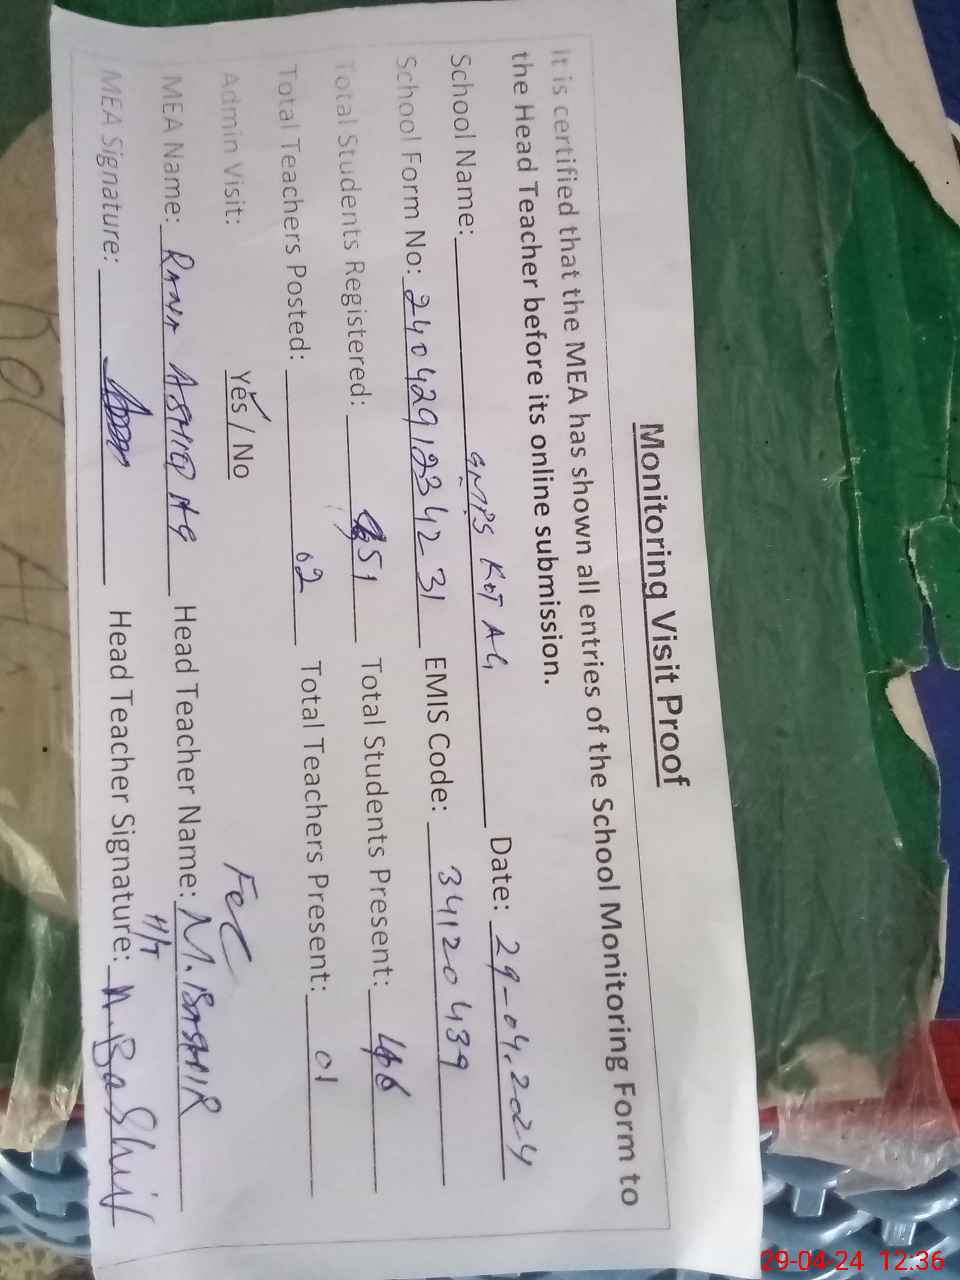 Monitoring Visit Proof
It is certified that the MEA has shown all entries of the School Monitoring Form to
the Head Teacher before its online submission.
School Name: GMPS KOT ALI Date: 29-04.2024
School Form No: 2404291233423 1 EMIS Code: 34120439
Total Students Registered: 51 Total Students Present: 46
Total Teachers Posted: 02 Total Teachers Present: 01
Admin Visit: Yes / No
MEA Name: RANA Head Teacher Name: M. BASHIR
MEA Signature: Head Teacher Signature: H/T M. Bashir
29-04-24 12:36